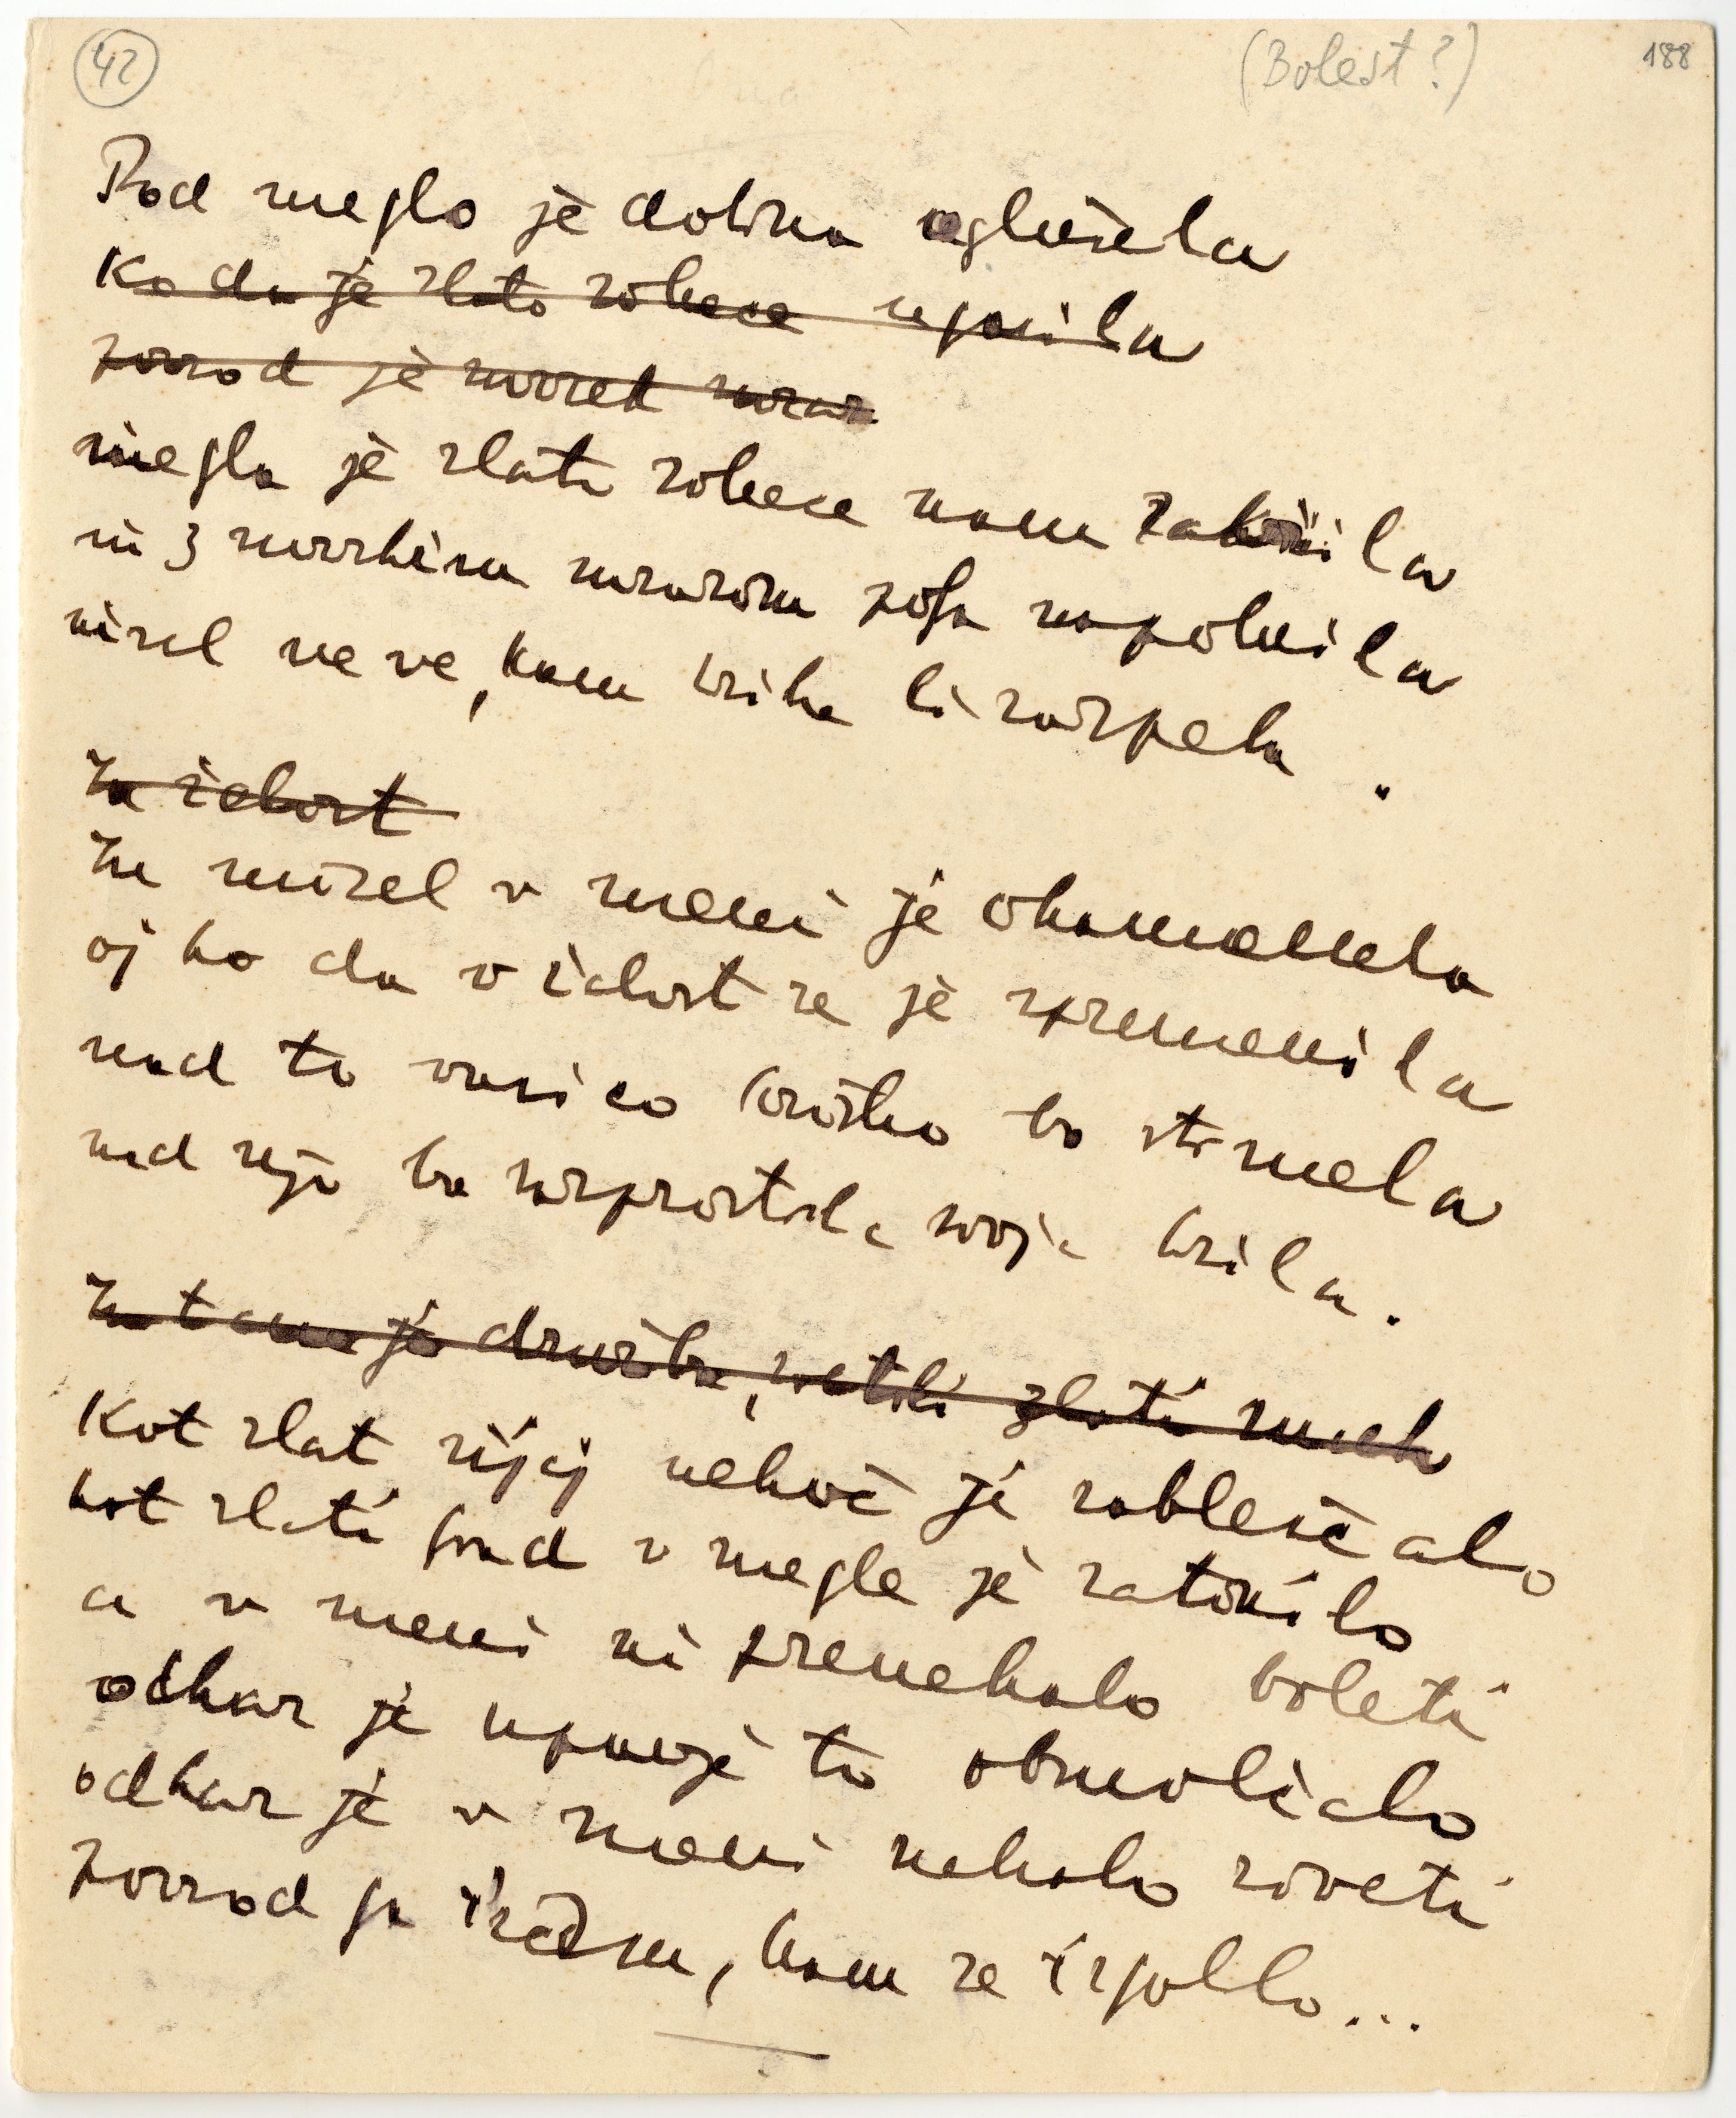 42 (Bolest?) 188
Pod meglo je dolina oglušela
Ko da je zlato solnce ugasila
povsod je mraz
megla je zlato solnce nam zakrila
in z mrazom polja napolnila
misel ne ve, kam krila bi razpela.
In žalost
In misel v meni je okamenela
oj ko da v žalost se je spremenila
nad to vasico britko bo strmela
nad njo bo razprostrla svoja krila.
In je družba, zlati smeh
Kot zlat sijaj nekoč je zableščalo
kot zlati grad v megle je zatonilo
a v meni ni prenehalo boleti
odkar je upanje to obmolčalo
odkar je v meni nehalo
povsod ga iščem, kam se izgubilo...